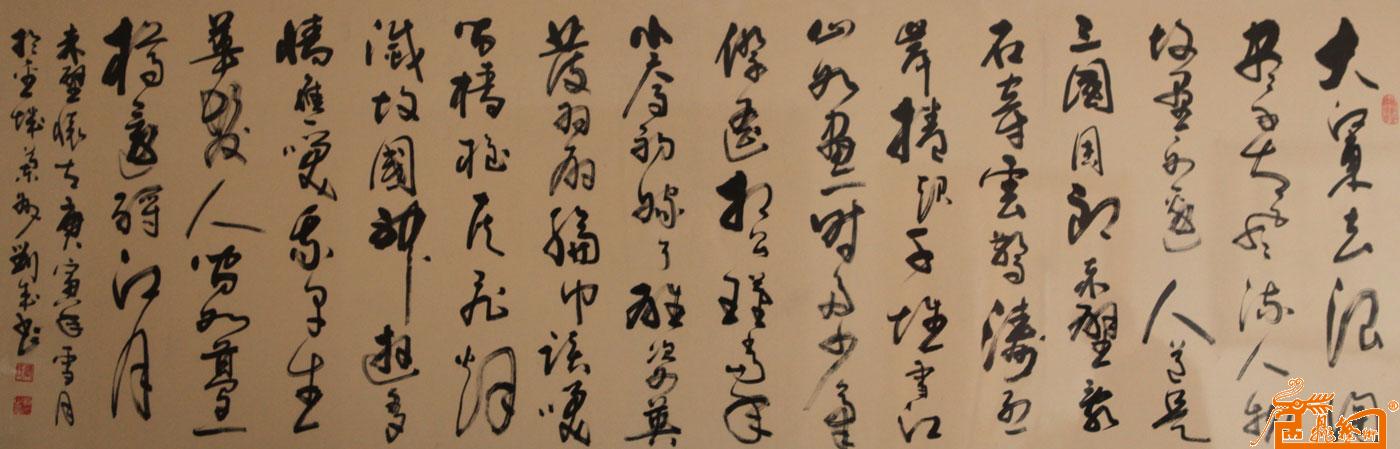 大江東去浪淘
盡千古風流人物
故壘西邊人道是
三國周郎赤壁亂
石穿雲驚濤裂
岸捲起千堆雪江
山如畫一時多少豪
傑遥想公瑾當年
小喬初嫁了雄姿英
發羽扇綸巾談笑
間檣櫓灰飛烟
滅故國神遊多
情應笑我早生
華髮人間如夢一
樽還酹江月
赤壁懷古庚寅年雪月
於金城蘭州劉書